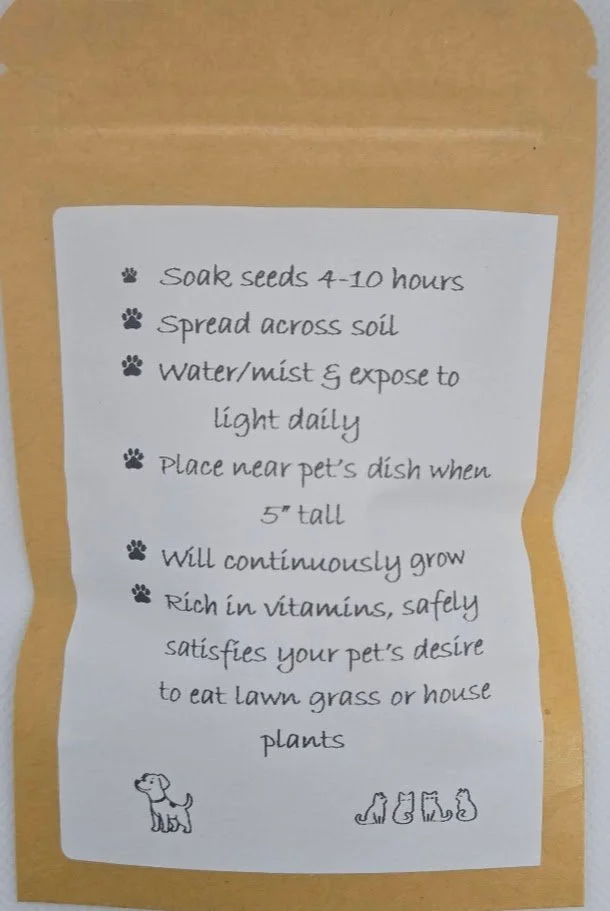 Soak seeds 4-10 hours
Spread across soil
Water/mist & expose to
light daily
Place near pet's dish when
5" tall
Will continuously grow
Rich in vitamins, safely
satisfies your pet's desire
to eat lawn grass or house
plants